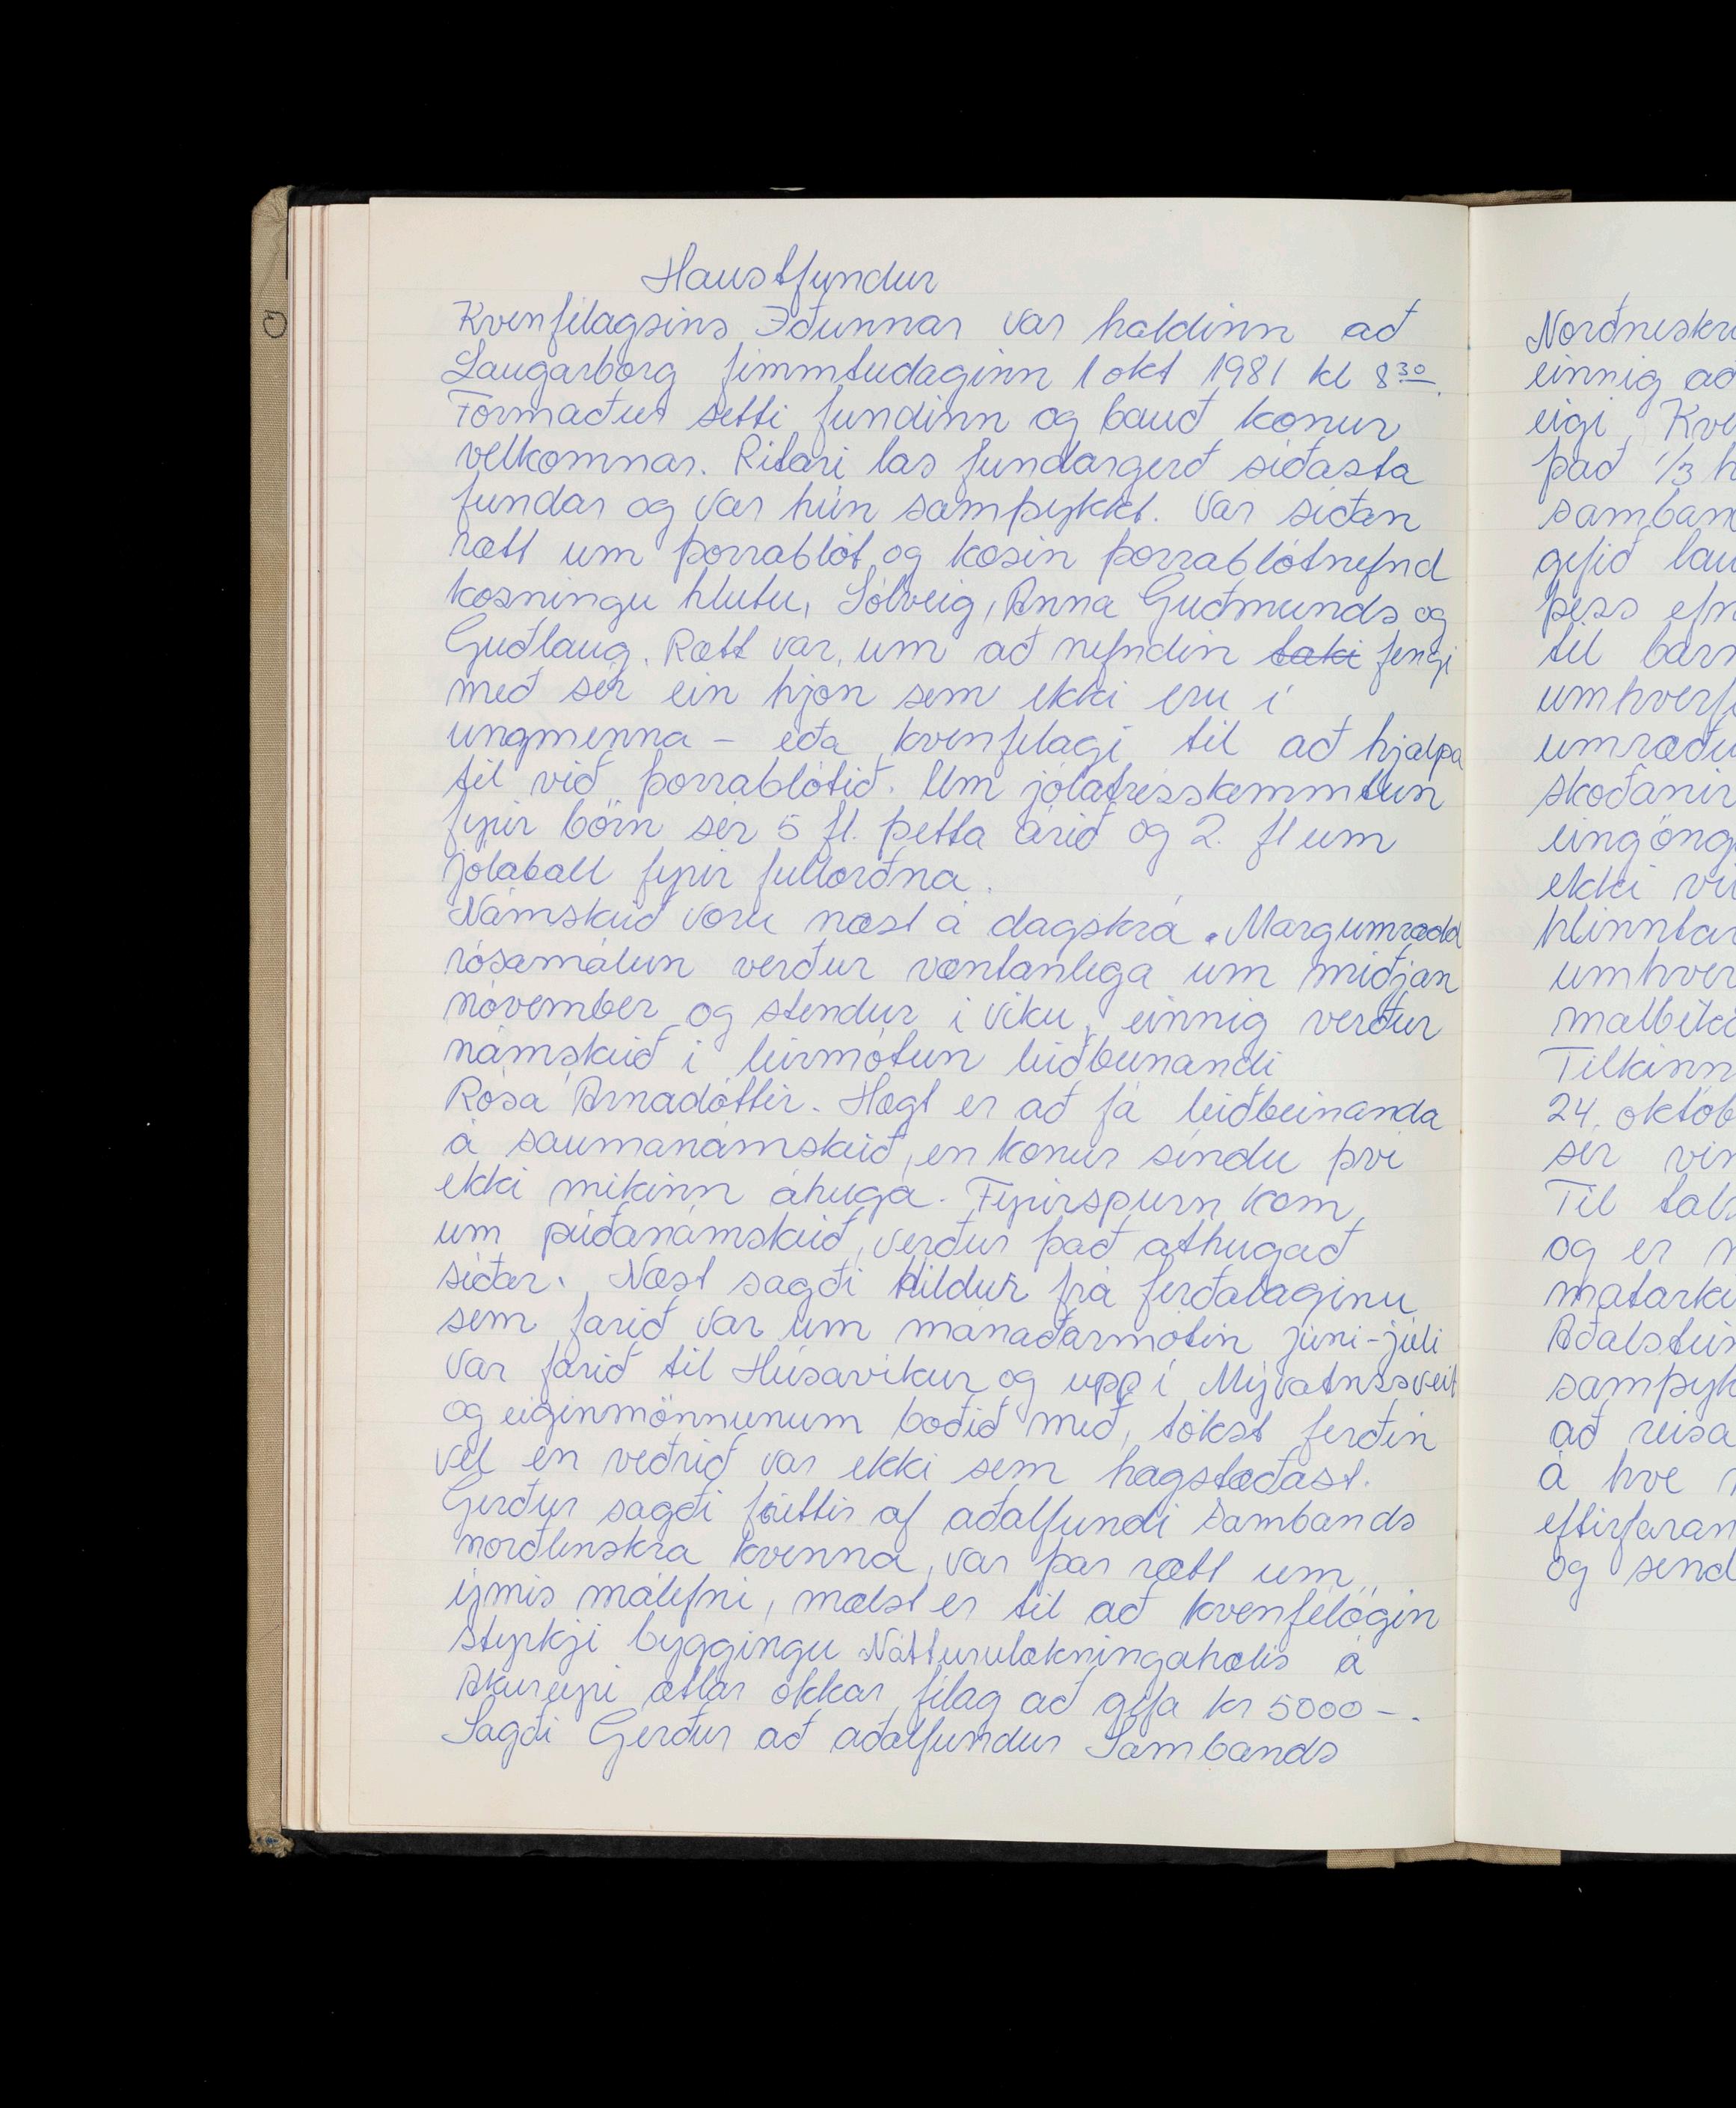 Haustfundur
Kvenfélagsins Iðunnar var haldinn að
Laugarborg fimmtudaginn 1 okt 1981 kl 8³⁰.
Formaður setti fundinn og bauð konur
velkomnar. Ritari las fundargerð síðasta
fundar og var hún samþykkt. Var síðan
rætt um þorrablót og kosin þorrablótnefnd
kosningu hlutu, Sólveig, Anna Guðmunds og
Guðlaug. Rætt var um að nefndin taki fengi
með sér ein hjón sem ekki eru í
ungmenna - eða kvenfélagi til að hjálpa
til við þorrablótið. Um jólatrésskemmtun
fyrir börn sér 5 fl. þetta árið og 2. fl um
jólaball fyrir fullorðna.
Námskeið voru næst á dagskrá. Margumrædd
rósamálun verður væntanlega um miðjan
nóvember og stendur í viku, einnig verður
námskeið í leirmótun leiðbeinandi
Rósa Árnadóttir. Hægt er að fá leiðbeinanda
á saumanámskeið, en konur síndu því
ekki mikinn áhuga. Fyrirspurn kom
um púðanámskeið, verður það athugað
síðar. Næst sagði Hildur frá ferðalaginu
sem farið var um mánaðarmótin júní-júlí
var farið til Húsavíkur og upp í Mývatnssveit
og eiginmönnunum boðið með, tókst ferðin
vel en veðrið var ekki sem hagstæðast.
Gerður sagði fréttir af aðalfundi Sambands
norðlenskra kvenna, var þar rætt um
ýmis málefni, mælst er til að kvenfélögin
styrkji byggingu Náttúrulækningahælis á
Akureyri ætlar okkar félag að gefa kr 5000-.
Sagði Gerður að aðalfundur Sambands
Norðneskra
einnig að
eigi Kve
það 1/3 h
samban
gefið lau
þess efn
til barn
umhverfi
umræðu
skoðanir
eingöngu
ekki vi
hlinntar
umhver
malbika
Tilkinn
24. októb
sér vin
Til tals
og er
matarku
Aðalstein
samþyk
að reisa
á hve
eftirfaran
og send